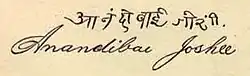 आनंदीबाई जोशी
Anandibai Joshee